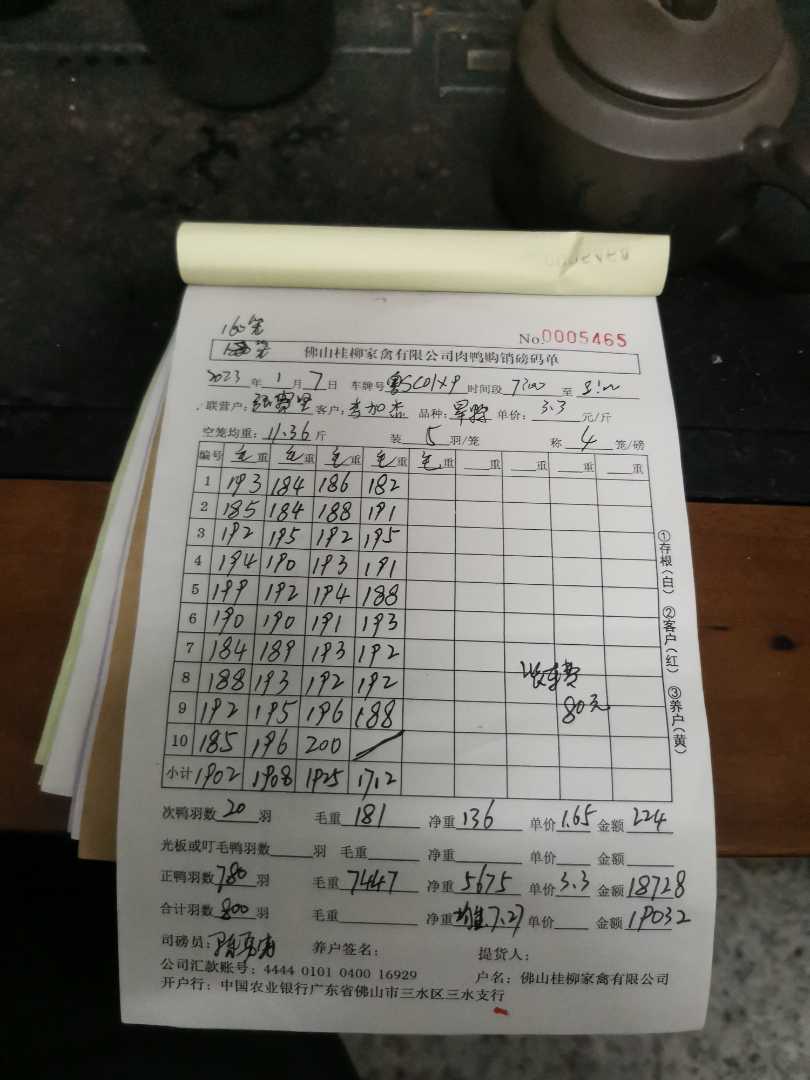 160笼
No.0005465
佛山桂柳家禽有限公司肉鸭购销磅码单
2023年1月7日 车牌号 粤SC01X9 时间段 7:00 至
联营户: 客户: 李加 品种: 单价: 3.3元/斤
空笼均重: 11.36斤 装5羽/笼 称4笼/磅
编号 毛重 毛重 毛重 毛重 毛重 重 重 重 重
1 193 184 186 182
2 185 184 188 191
3 192 195 192 195
4 194 190 193 191
5 199 192 194 188
6 190 190 191 193
7 184 189 193 192
8 188 193 192 192
9 192 195 196 188
10 185 196 200
小计 1902 1908 1925 1712
收车费
80元
次鸭羽数 20羽 毛重 181 净重 136 单价 1.65 金额 224
光板或叮毛鸭羽数 羽 毛重 净重 单价 金额
正鸭羽数 780羽 毛重 7447 净重 5675 单价 3.3 金额 18728
合计羽数 800羽 毛重 净重 均重7.27 单价 金额 19032
司磅员: 养户签名: 提货人:
公司汇款账号: 4444 0101 0400 16929 户名: 佛山桂柳家禽有限公司
开户行: 中国农业银行广东省佛山市三水区三水支行
①存根(白) ②客户(红) ③养户(黄)